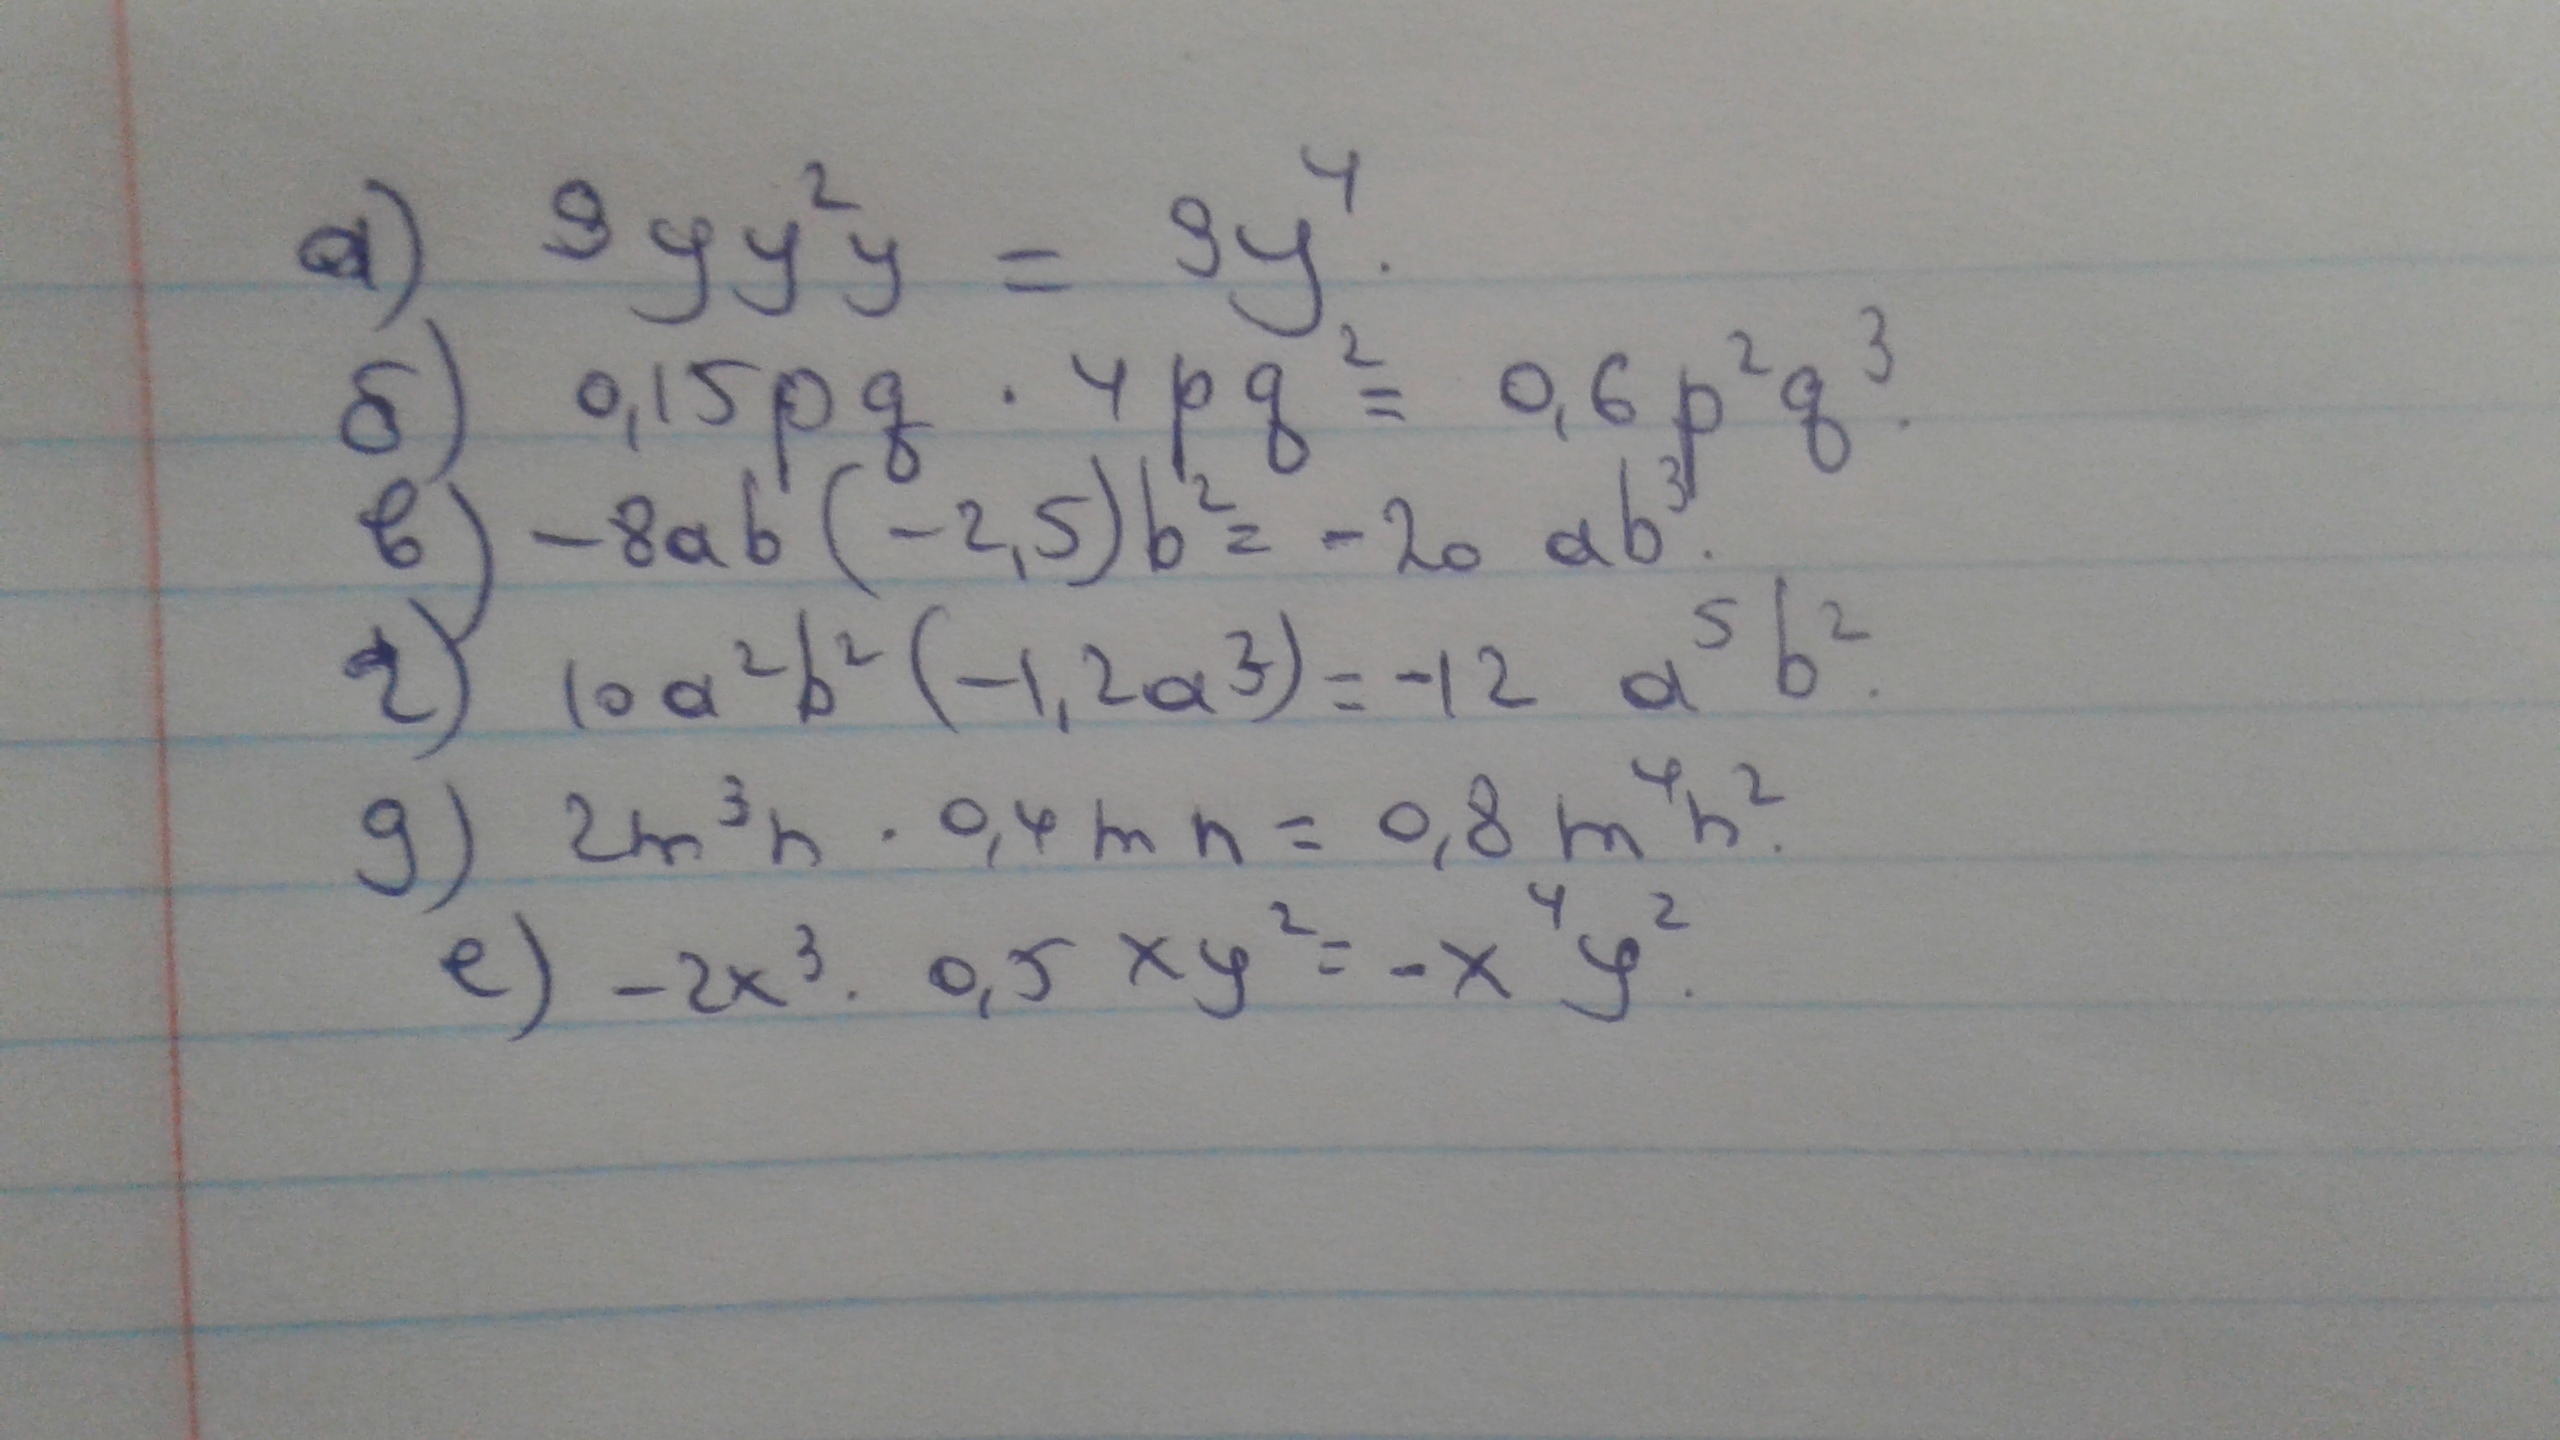 а) 9yy²y = 9y⁴.
б) 0,15pq · 4pq² = 0,6p²q³.
в) -8ab(-2,5)b² = -20 ab³.
г) 10a²b²(-1,2a³) = -12 a⁵b².
д) 2m³n · 0,4mn = 0,8m⁴n².
е) -2x³ · 0,5xy² = -x⁴y².